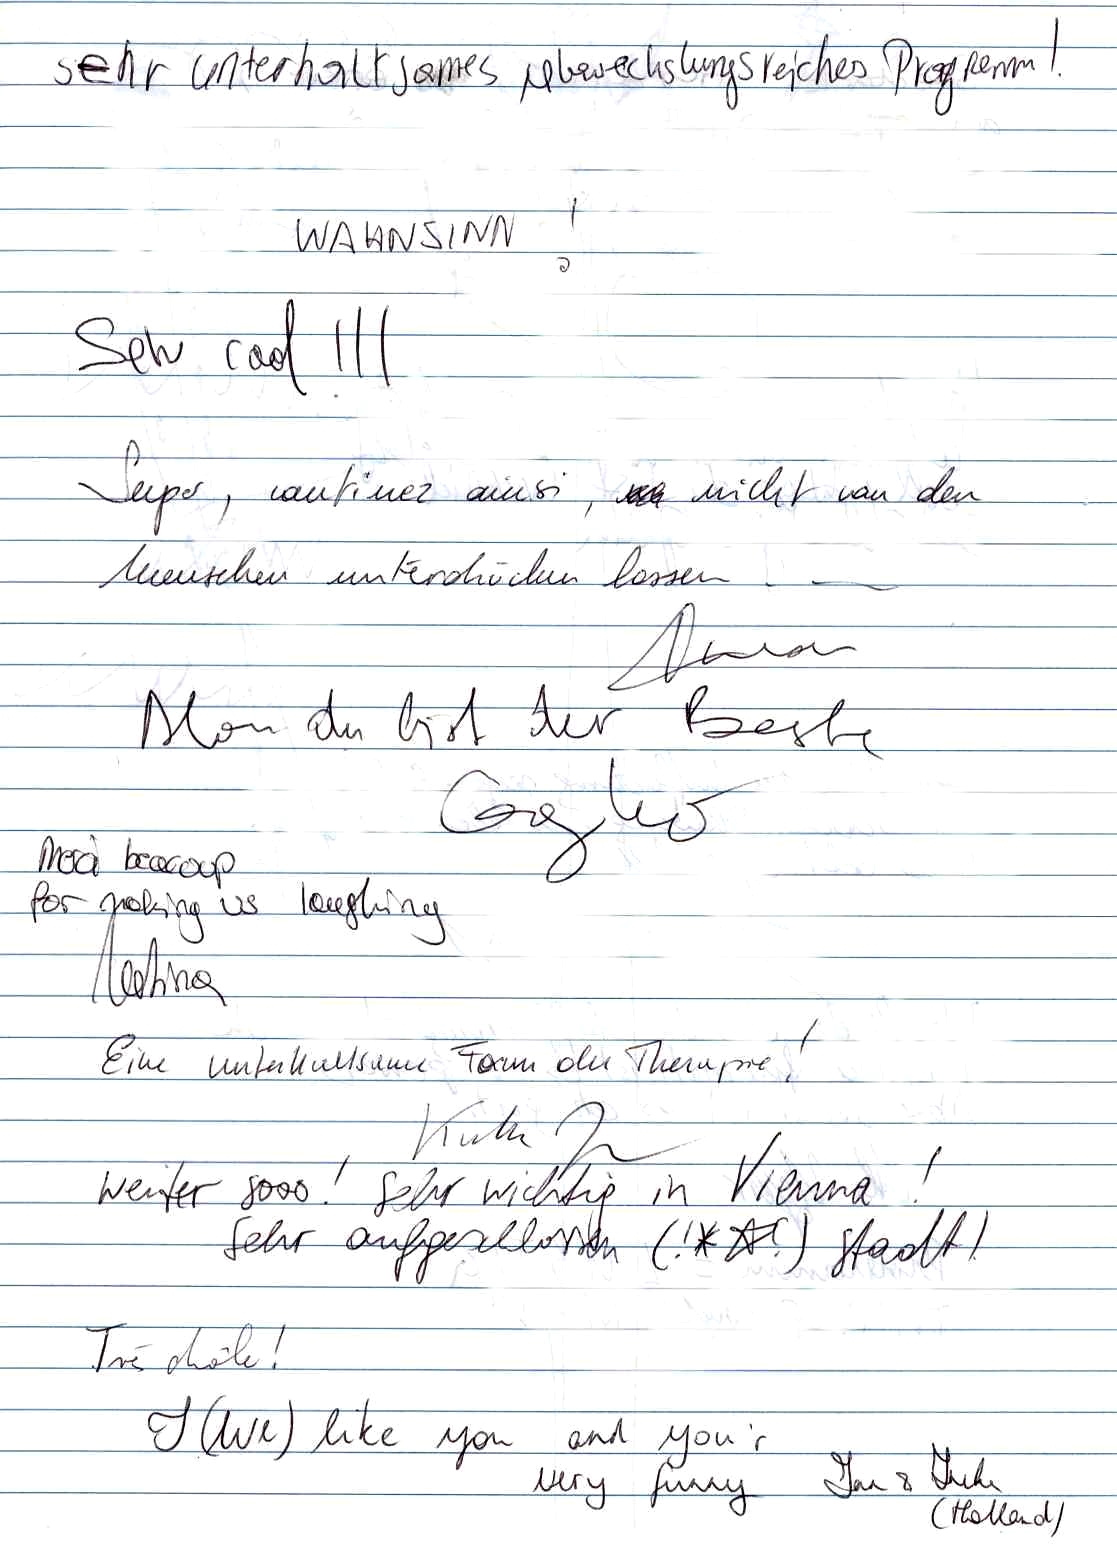 sehr unterhaltsames abwechslungsreiches Programm!
WAHNSINN !
Sehr cool !!!
Super, continuez ainsi, nicht von den
Menschen unterdrücken lassen
Man du bist der Beste
Merci beacoup
for making us laughing
Eine unterhaltsame Form der Therapie!
weiter sooo! Sehr wichtig in Vienna!
Sehr aufgeschlossen (!**!) Stadt!
Très drôle!
I (We) like you and you'r
very funny Jan &
(Holland)